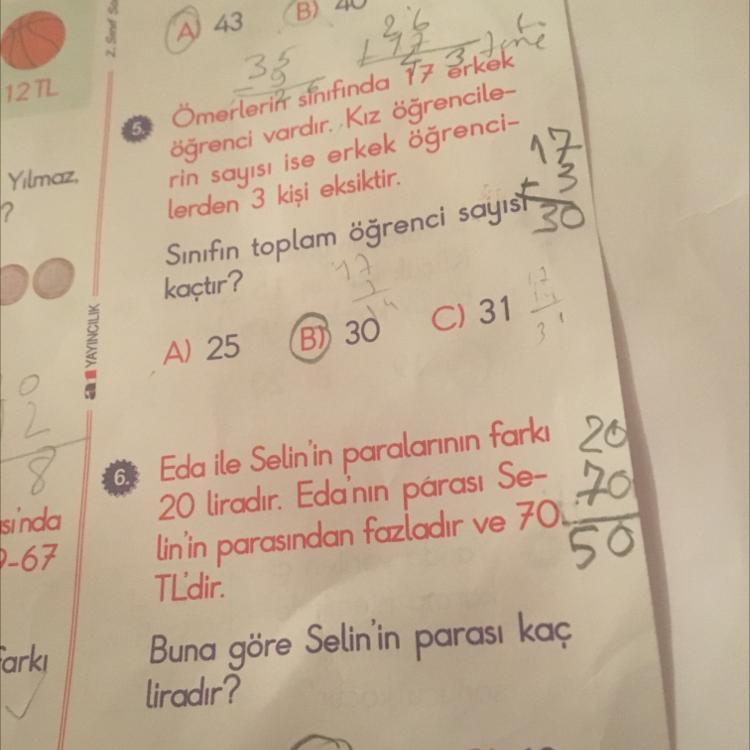 A) 43
B) 40
2. Sınıf
26
+ 17
43
35
- 9
26
12 TL
5. Ömerlerin sınıfında 17 erkek
öğrenci vardır. Kız öğrencile-
rin sayısı ise erkek öğrenci-
lerden 3 kişi eksiktir.
17
+ 3
30
Sınıfın toplam öğrenci sayısı
kaçtır?
A) 25
B) 30
C) 31
17
14
31
Yılmaz,
?
a1 YAYINCILIK
0
2
8
6. Eda ile Selin'in paralarının farkı
20 liradır. Eda'nın parası Se-
lin'in parasından fazladır ve 70
TL'dir.
20
70
50
Buna göre Selin'in parası kaç
liradır?
sı'nda
-67
farkı